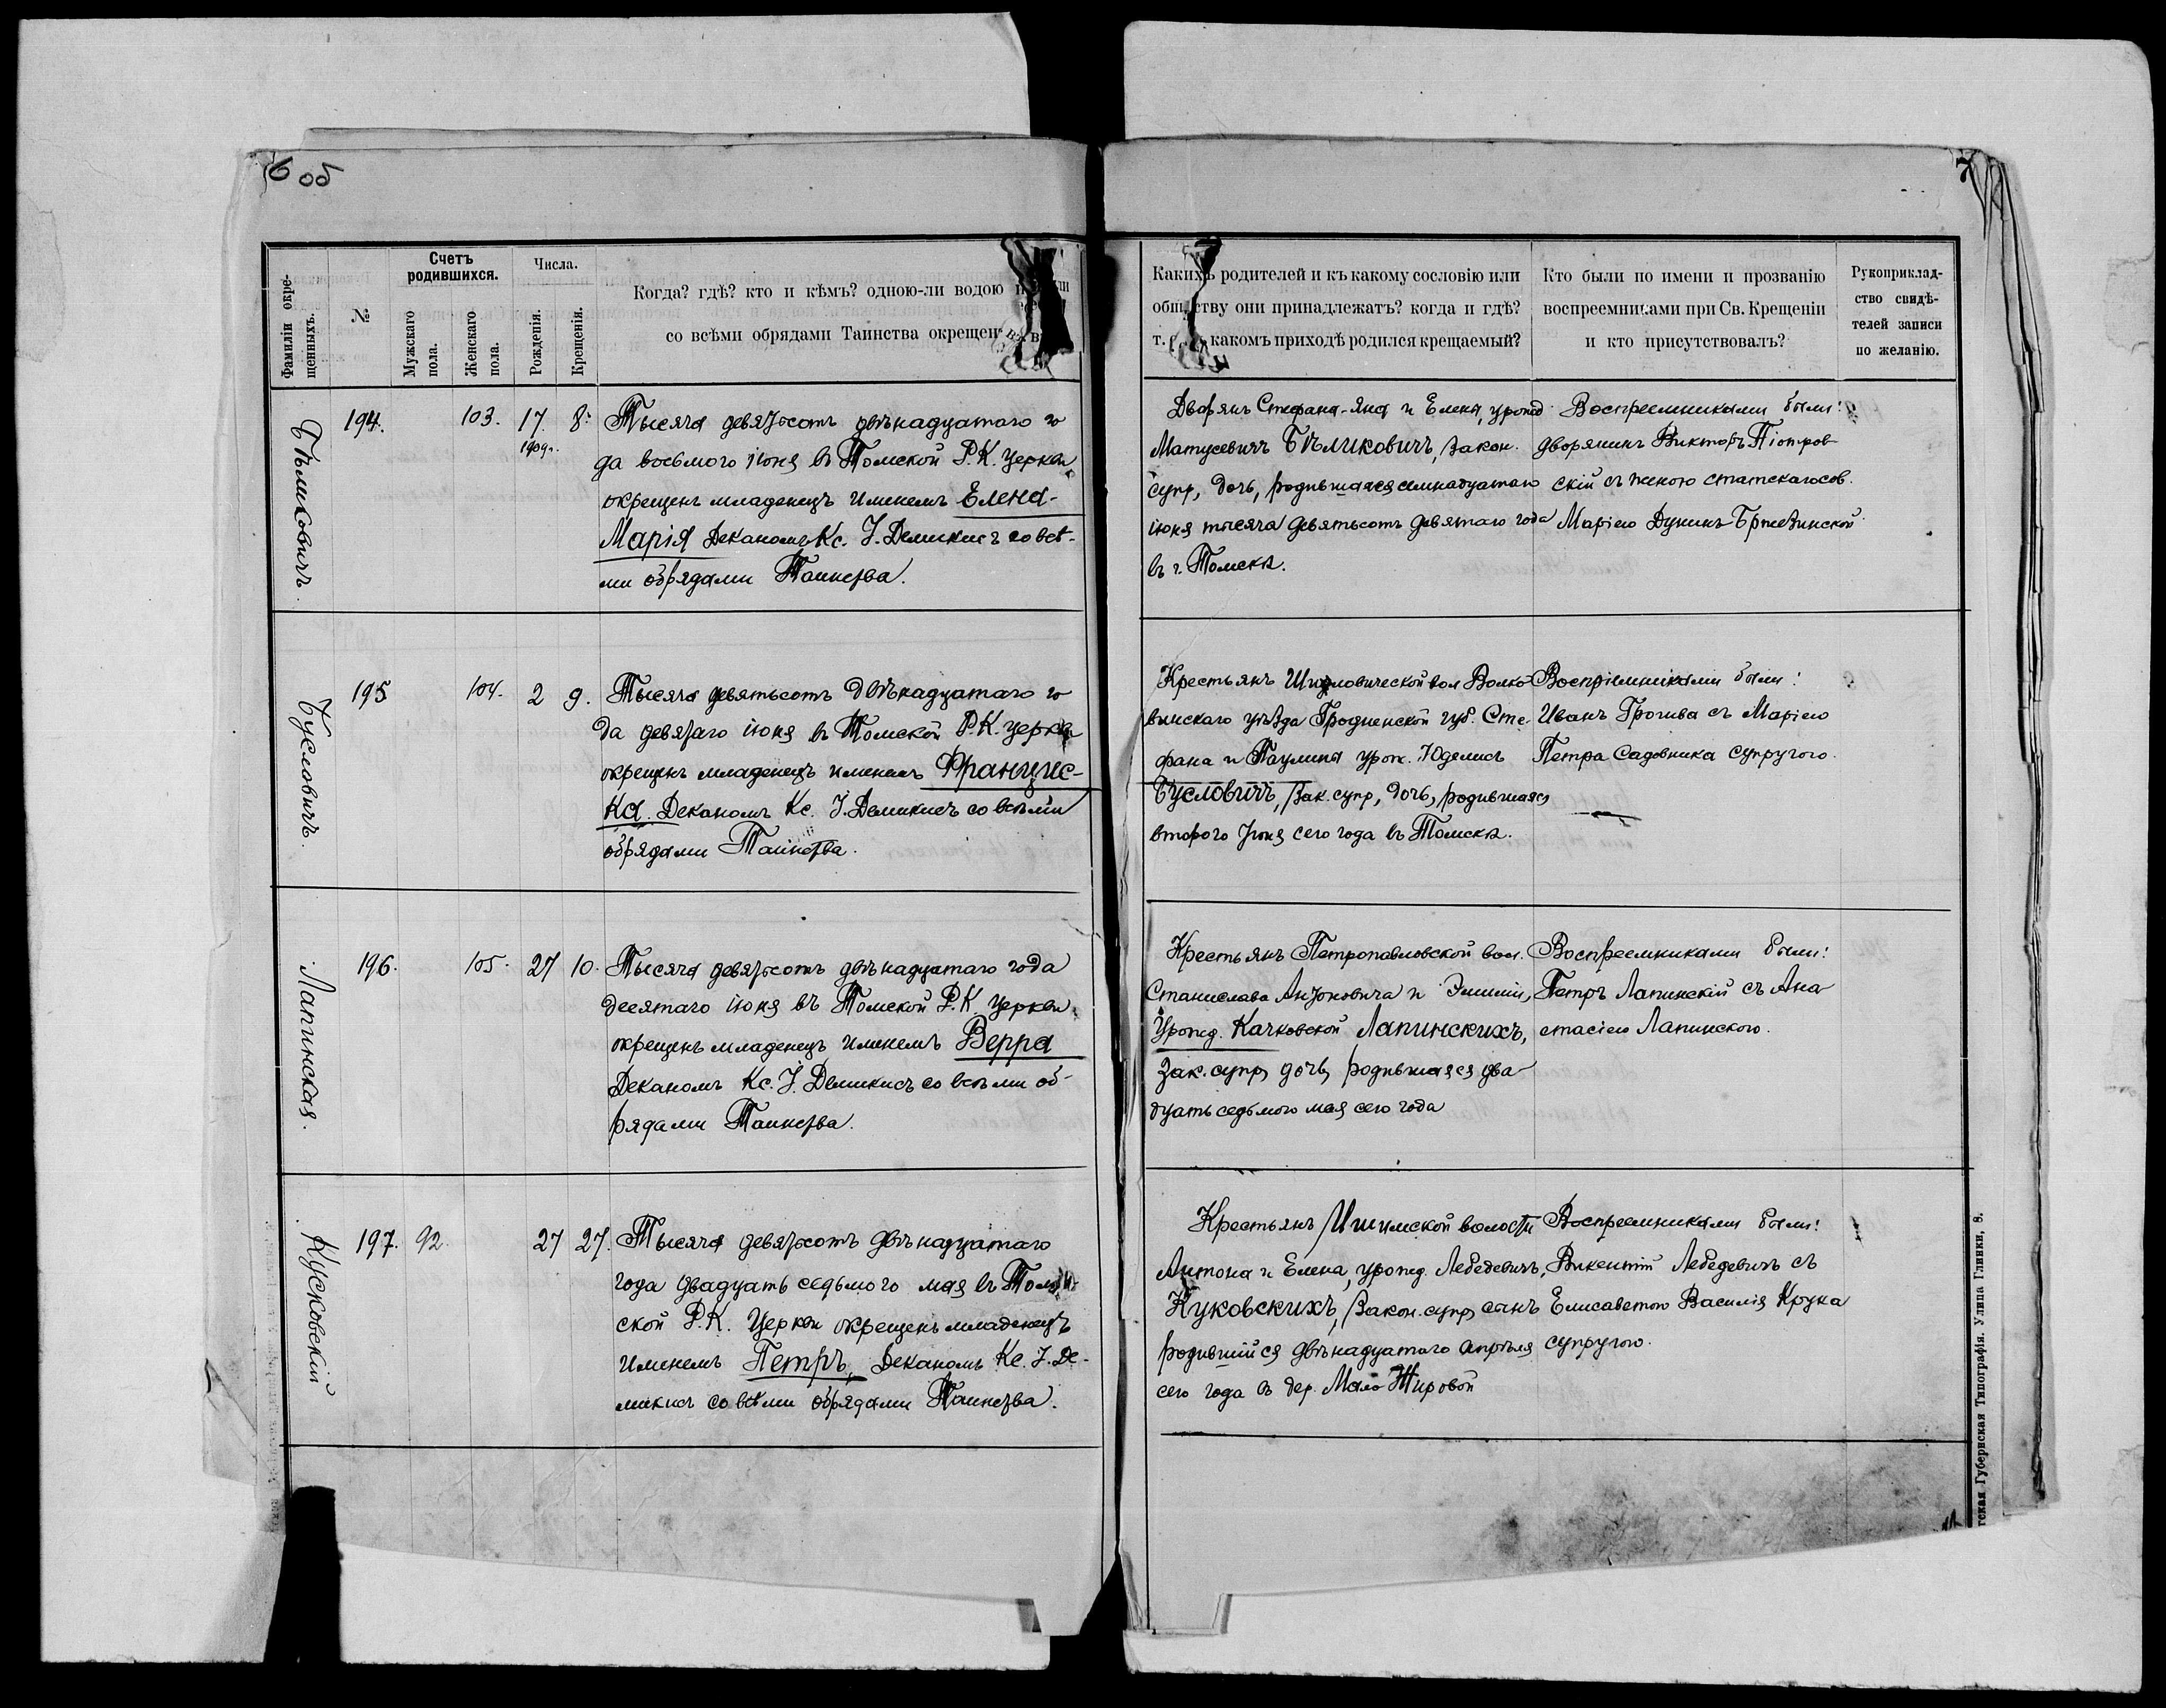 6 об
7
Фамиліи окре-
щенныхъ.
№
Счетъ
родившихся.
Мужскаго
пола.
Женскаго
пола.
Числа.
Рожденія.
Крещенія.
Когда? гдѣ? кто и кѣмъ? одною-ли водою
со всѣми обрядами Таинства окрещенъ
Какихъ родителей и къ какому сословію или
обществу они принадлежатъ? когда и гдѣ?
т. какомъ приходѣ родился крещаемый?
Кто были по имени и прозванію
воспреемниками при Св. Крещеніи
и кто присутствовалъ?
Рукоприклад-
ство свидѣ-
телей записи
по желанію.
Бѣликовичъ.
194.
103.
17.
1909 г.
8.
Тысяча девятьсотъ двѣнадцатаго го
да восьмого іюня въ Томской Р.К. церкви
окрещенъ младенецъ именемъ Елена-
Марія Деканомъ Кс. І. Демикисъ со всѣ-
ми обрядами Таинства.
Дворянъ Стефана-Яна и Елены, урожд
Матусевичъ Бѣликовичъ, закон.
супр, дочь, родившаяся семнадцатаго
іюня тысяча девятьсотъ девятаго года
въ г. Томскѣ.
Воспреемниками были:
дворянинъ Викторъ Піотров-
скій съ женою статскаго сов.
Маріею Дунинъ Бржезинской
Бусловичъ.
195
104.
2
9.
Тысяча девятьсотъ двѣнадцатаго го
да девятаго іюня въ Томской Р.К. церкви
окрещенъ младенецъ именемъ Францис-
ка. Деканомъ Кс. І. Демикисъ со всѣми
обрядами Таинства.
Крестьянъ Шидловической вол Волко
выскаго уѣзда Гродненской губ. Сте-
фана и Паулины урож. Юделисъ
Бусловичъ, зак. супр, дочь, родившаяся
второго Іюня сего года въ Томскѣ.
Воспріемниками были:
Иванъ Грошва съ Маріею
Петра Садовника супругою.
Лапинская.
196.
105.
27
10.
Тысяча девятьсотъ двѣнадцатаго года
десятаго іюня въ Томской Р.К. церкви
окрещенъ младенецъ именемъ Верра
Деканомъ Кс. І. Демикисъ со всѣми об-
рядами Таинства.
Крестьянъ Петропавловской вол.
Станислава Антоновича и Эмиліи,
Урожд. Качковской Лапинскихъ,
Зак. супр, дочь, родившаяся два-
дцать седьмого мая сего года
Воспреемниками были:
Петръ Лапинскій съ Ана
стасіею Лапинского.
Кусковскій
197.
92.
27
27.
Тысяча девятьсотъ двѣнадцатаго
года двадцать седьмого мая въ Том
ской Р.К. Церкви окрещенъ младенецъ
именемъ Петръ, Деканомъ Кс. І. Де-
микисъ со всѣми обрядами Таинства.
Крестьянъ Ишимской волости
Антона и Елена, урожд. Лебедевичъ,
Куковскихъ, закон. супр, сынъ
родившійся двѣнадцатаго апрѣля
сего года въ дер. Мало Жировой
Воспреемниками были:
Викентій Лебедевичъ съ
Елисаветою Василія Крука
супругою.
тская Губернская Типографія. Улица Глинки, 8.